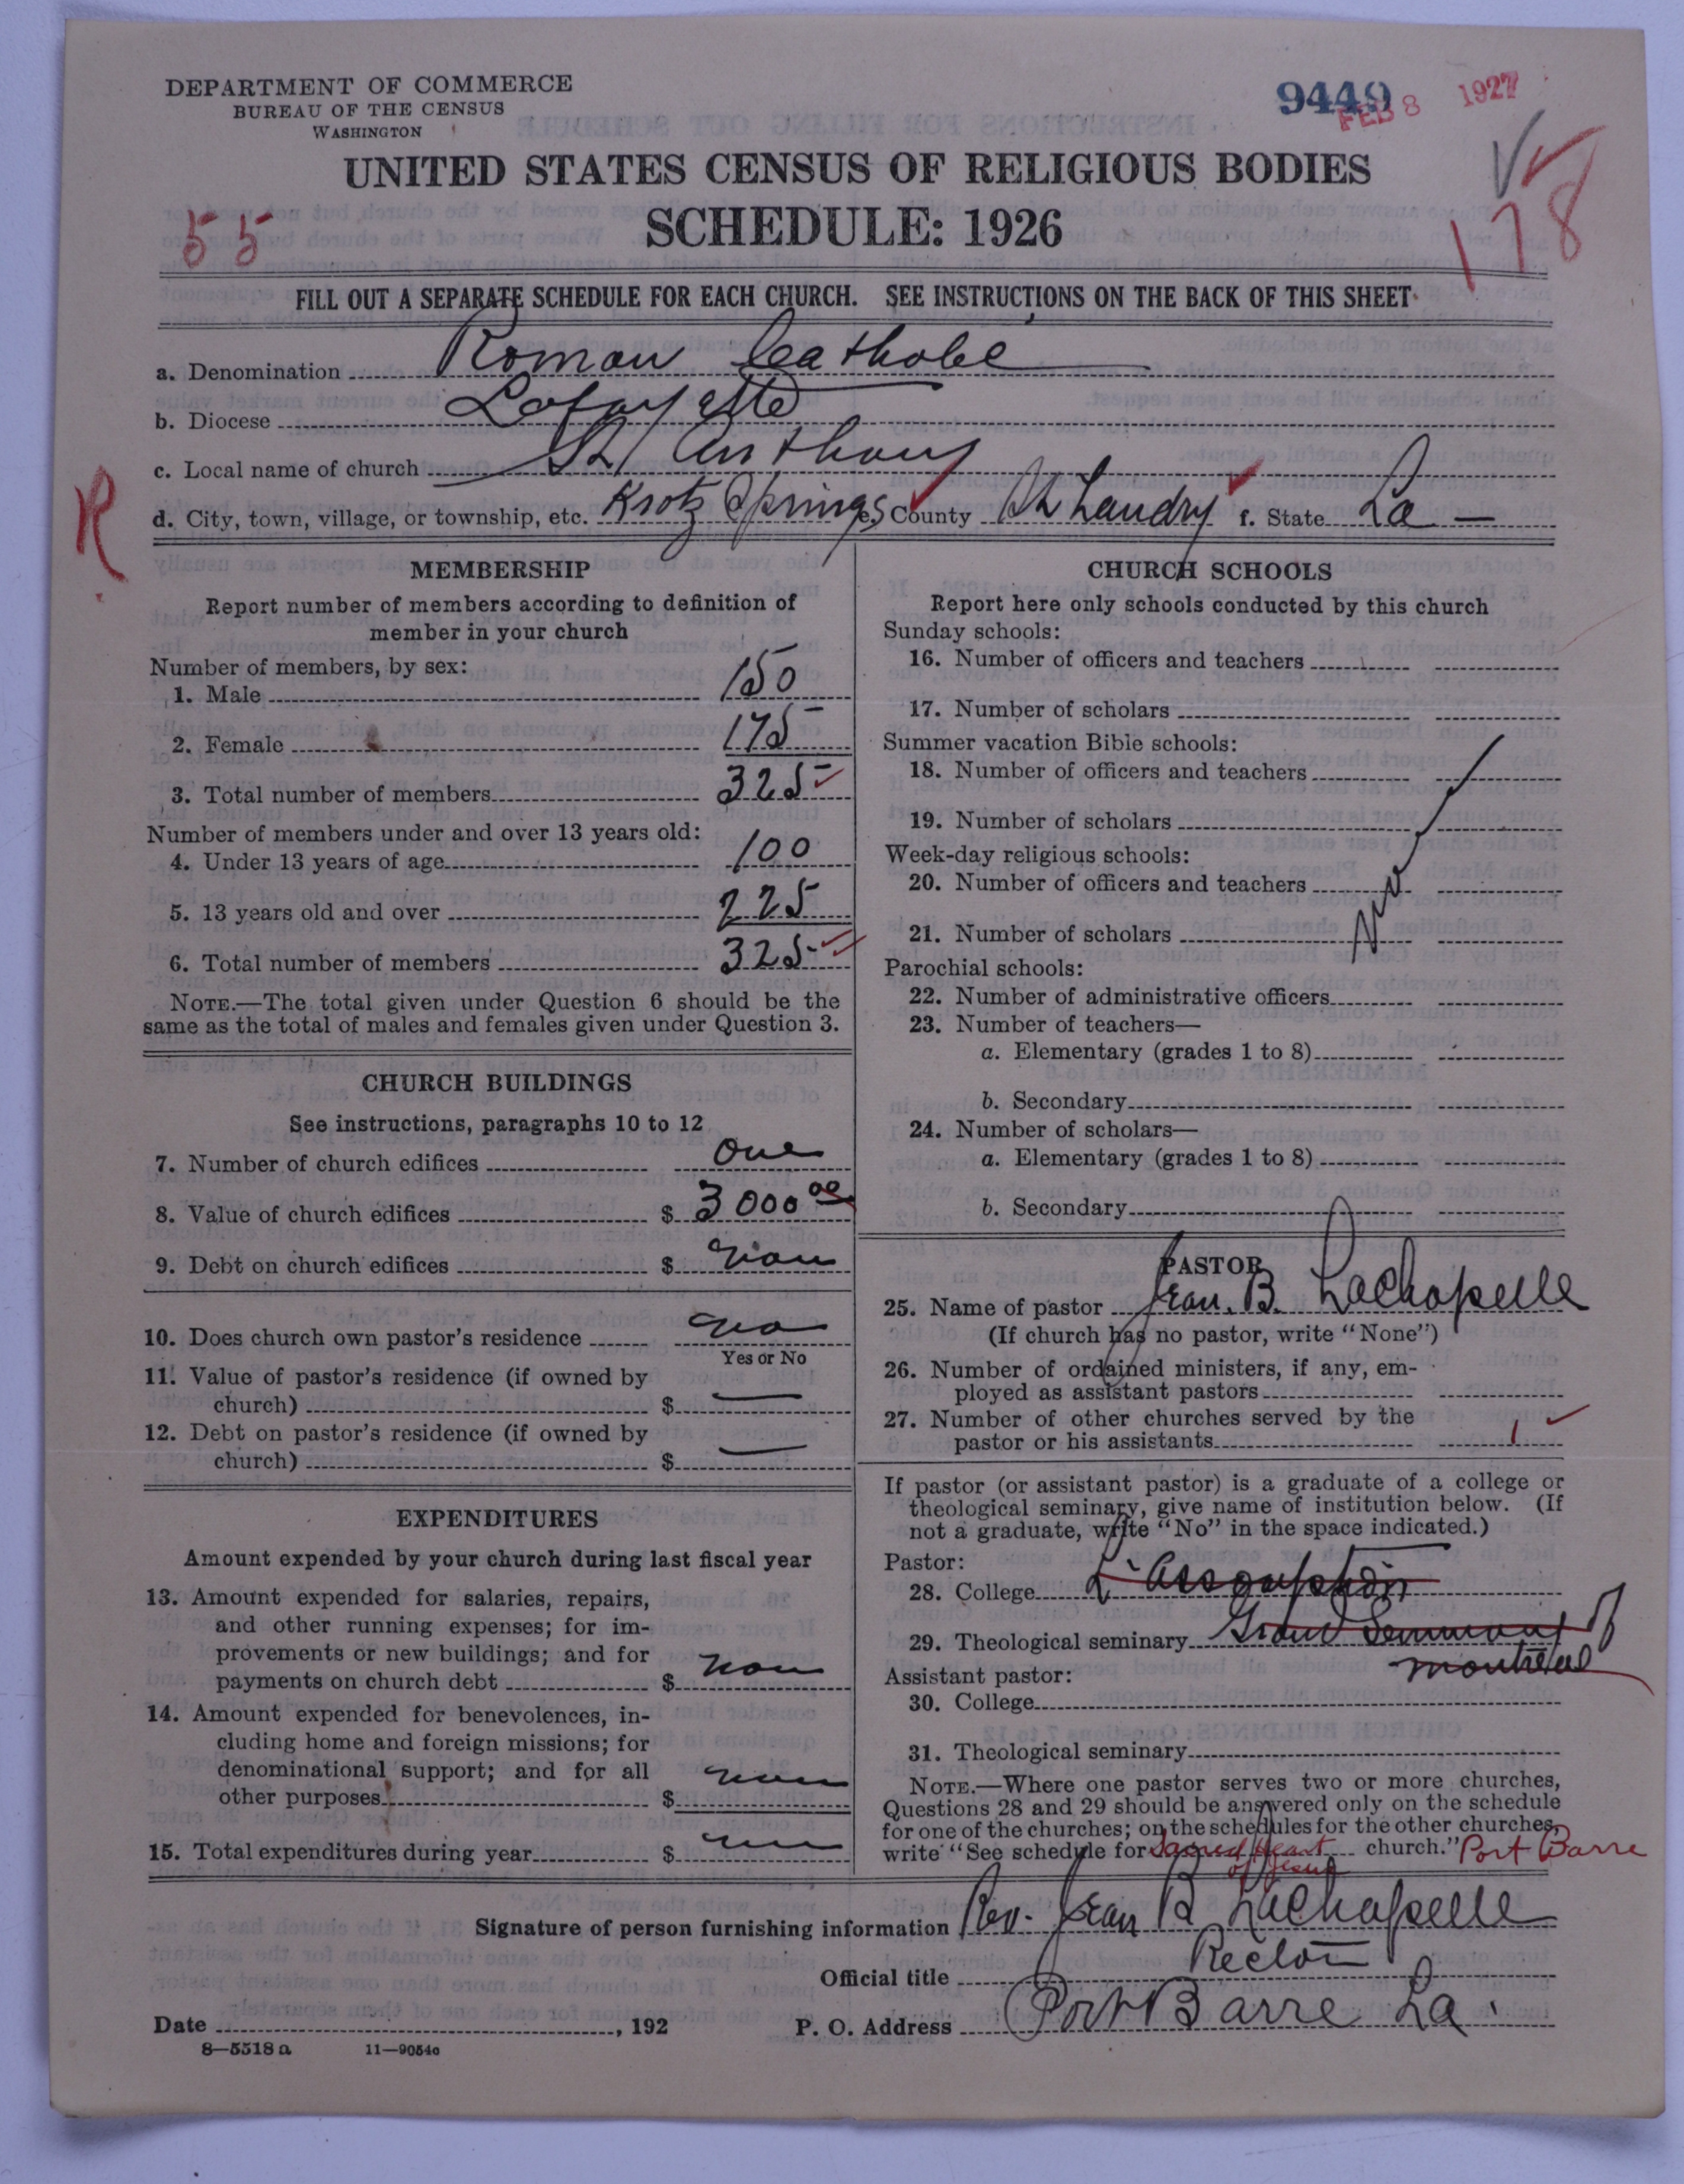 DEPARTMENT OF COMMERCE
BUREAU OF THE CENSUS
WASHINGTON
9449
FEB 8 1927
UNITED STATES CENSUS OF RELIGIOUS BODIES
SCHEDULE: 1926
55
178
FILL OUT A SEPARATE SCHEDULE FOR EACH CHURCH. SEE INSTRUCTIONS ON THE BACK OF THIS SHEET
a. Denomination Roman Catholic
b. Diocese Lafayette
c. Local name of church St Anthony
R
d. City, town, village, or township, etc. Krotz Springs e. County St Landry f. State La —
MEMBERSHIP
Report number of members according to definition of
member in your church
Number of members, by sex:
1. Male 150
2. Female 175
3. Total number of members 325
Number of members under and over 13 years old:
4. Under 13 years of age 100
5. 13 years old and over 225
6. Total number of members 325
NOTE.—The total given under Question 6 should be the
same as the total of males and females given under Question 3.
CHURCH BUILDINGS
See instructions, paragraphs 10 to 12
7. Number of church edifices one
8. Value of church edifices $ 3000 00
9. Debt on church edifices $ non
10. Does church own pastor's residence no
Yes or No
11. Value of pastor's residence (if owned by
church) $ —
12. Debt on pastor's residence (if owned by
church) $ —
EXPENDITURES
Amount expended by your church during last fiscal year
13. Amount expended for salaries, repairs,
and other running expenses; for im-
provements or new buildings; and for
payments on church debt $ non
14. Amount expended for benevolences, in-
cluding home and foreign missions; for
denominational support; and for all
other purposes $ non
15. Total expenditures during year $ non
CHURCH SCHOOLS
Report here only schools conducted by this church
Sunday schools:
16. Number of officers and teachers
17. Number of scholars
Summer vacation Bible schools:
18. Number of officers and teachers
19. Number of scholars
Week-day religious schools:
20. Number of officers and teachers
21. Number of scholars
Parochial schools:
22. Number of administrative officers
23. Number of teachers—
a. Elementary (grades 1 to 8)
b. Secondary
24. Number of scholars—
a. Elementary (grades 1 to 8)
b. Secondary
PASTOR
25. Name of pastor Jean. B. LaChapelle
(If church has no pastor, write "None")
26. Number of ordained ministers, if any, em-
ployed as assistant pastors
27. Number of other churches served by the
pastor or his assistants 1
If pastor (or assistant pastor) is a graduate of a college or
theological seminary, give name of institution below. (If
not a graduate, write "No" in the space indicated.)
Pastor:
28. College L'Assomption
29. Theological seminary Grand Seminary of
Montreal
Assistant pastor:
30. College
31. Theological seminary
NOTE.—Where one pastor serves two or more churches,
Questions 28 and 29 should be answered only on the schedule
for one of the churches; on the schedules for the other churches,
write "See schedule for Sacred Heart church." Port Barre
of Jesus
Signature of person furnishing information Rev. Jean B LaChapelle
Official title Rector
Date , 192
P. O. Address Port Barre La.
8—5518 a 11—9054c